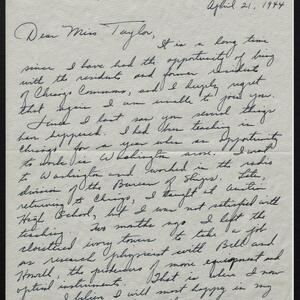 April 21, 1944
Dear Miss Taylor,
It is a long time
since I have had the opportunity of being
with the residents and former residents
of Chicago Commons, and I deeply regret
that again I am unable to join you.
Since I last saw you several things
have happened. I had been teaching in
Chicago for a year when an opportunity
to work in Washington arose. I went
to Washington and worked in the radio
division of the Bureau of Ships. Later
returning to Chicago, I taught at Austin
High School, but I was not satisfied with
teaching. Two months ago I left the
cloistered ivory towers to take a job
as research physicist with Bell and
Howell, the producers of movie equipment and
optical instruments. That is where I now
I believe I will most happy in my